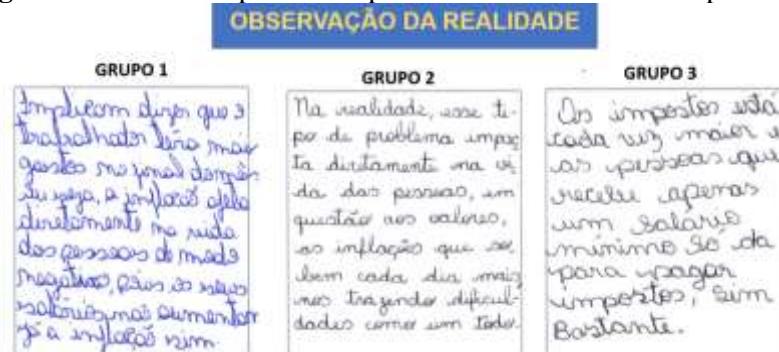 OBSERVAÇÃO DA REALIDADE
GRUPO 1
Implicam dizer que o
trabalhador terá mais
gastos no final
ou seja, a inflação afeta
diretamente na vida
das pessoas de modo
negativo, pois os seus
salários não aumentam
já a inflação sim
GRUPO 2
Na realidade, esse ti-
po de problema impac
ta diretamente na vi
da das pessoas, em
questão aos valores,
as inflações que so
bem cada dia mais
nos trazendo dificul-
dades como um todo.
GRUPO 3
Os impostos está
cada vez maior e
as pessoas que
recebe apenas
um salário
mínimo só da
para pagar
impostos, sim
Bastante.